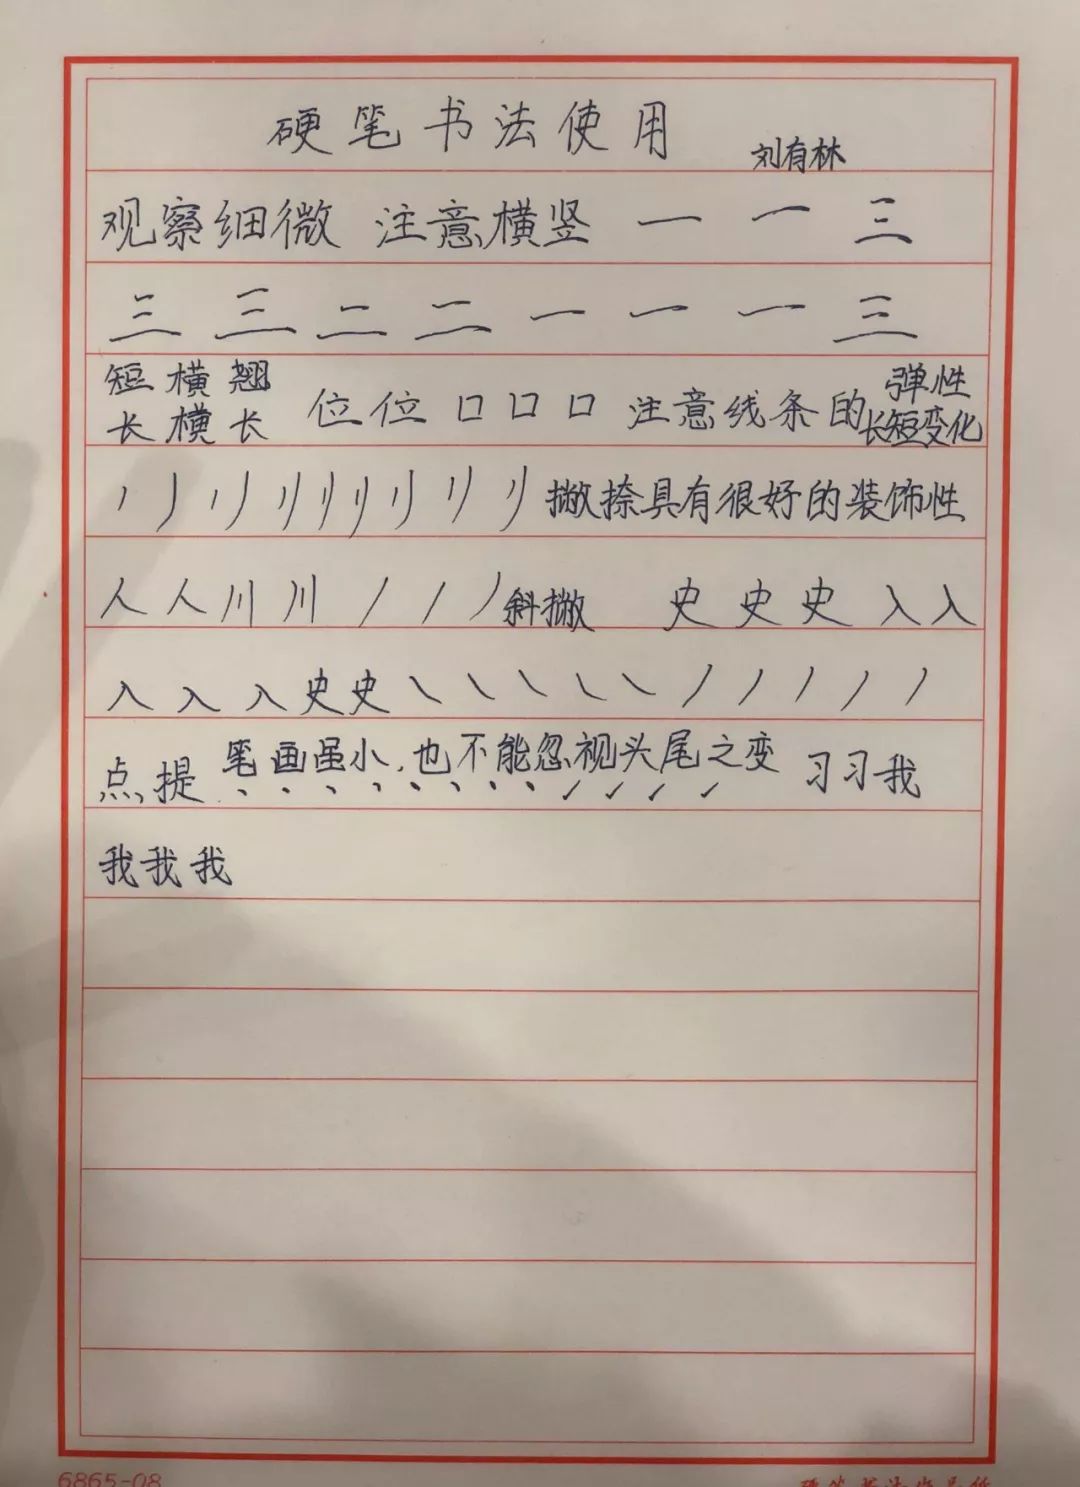 硬笔书法使用
刘有林
观察细微 注意横竖 一 一 三
三 三 二 二 一 一 一 三
短横翘
长横长
位位口口口 注意线条的
弹性
长短变化
撇捺具有很好的装饰性
人人川川 丿丿丿斜撇 史史史入入
入入入史史
点、提 笔画虽小,也不能忽视头尾之变 习习我
我我我
6865-08